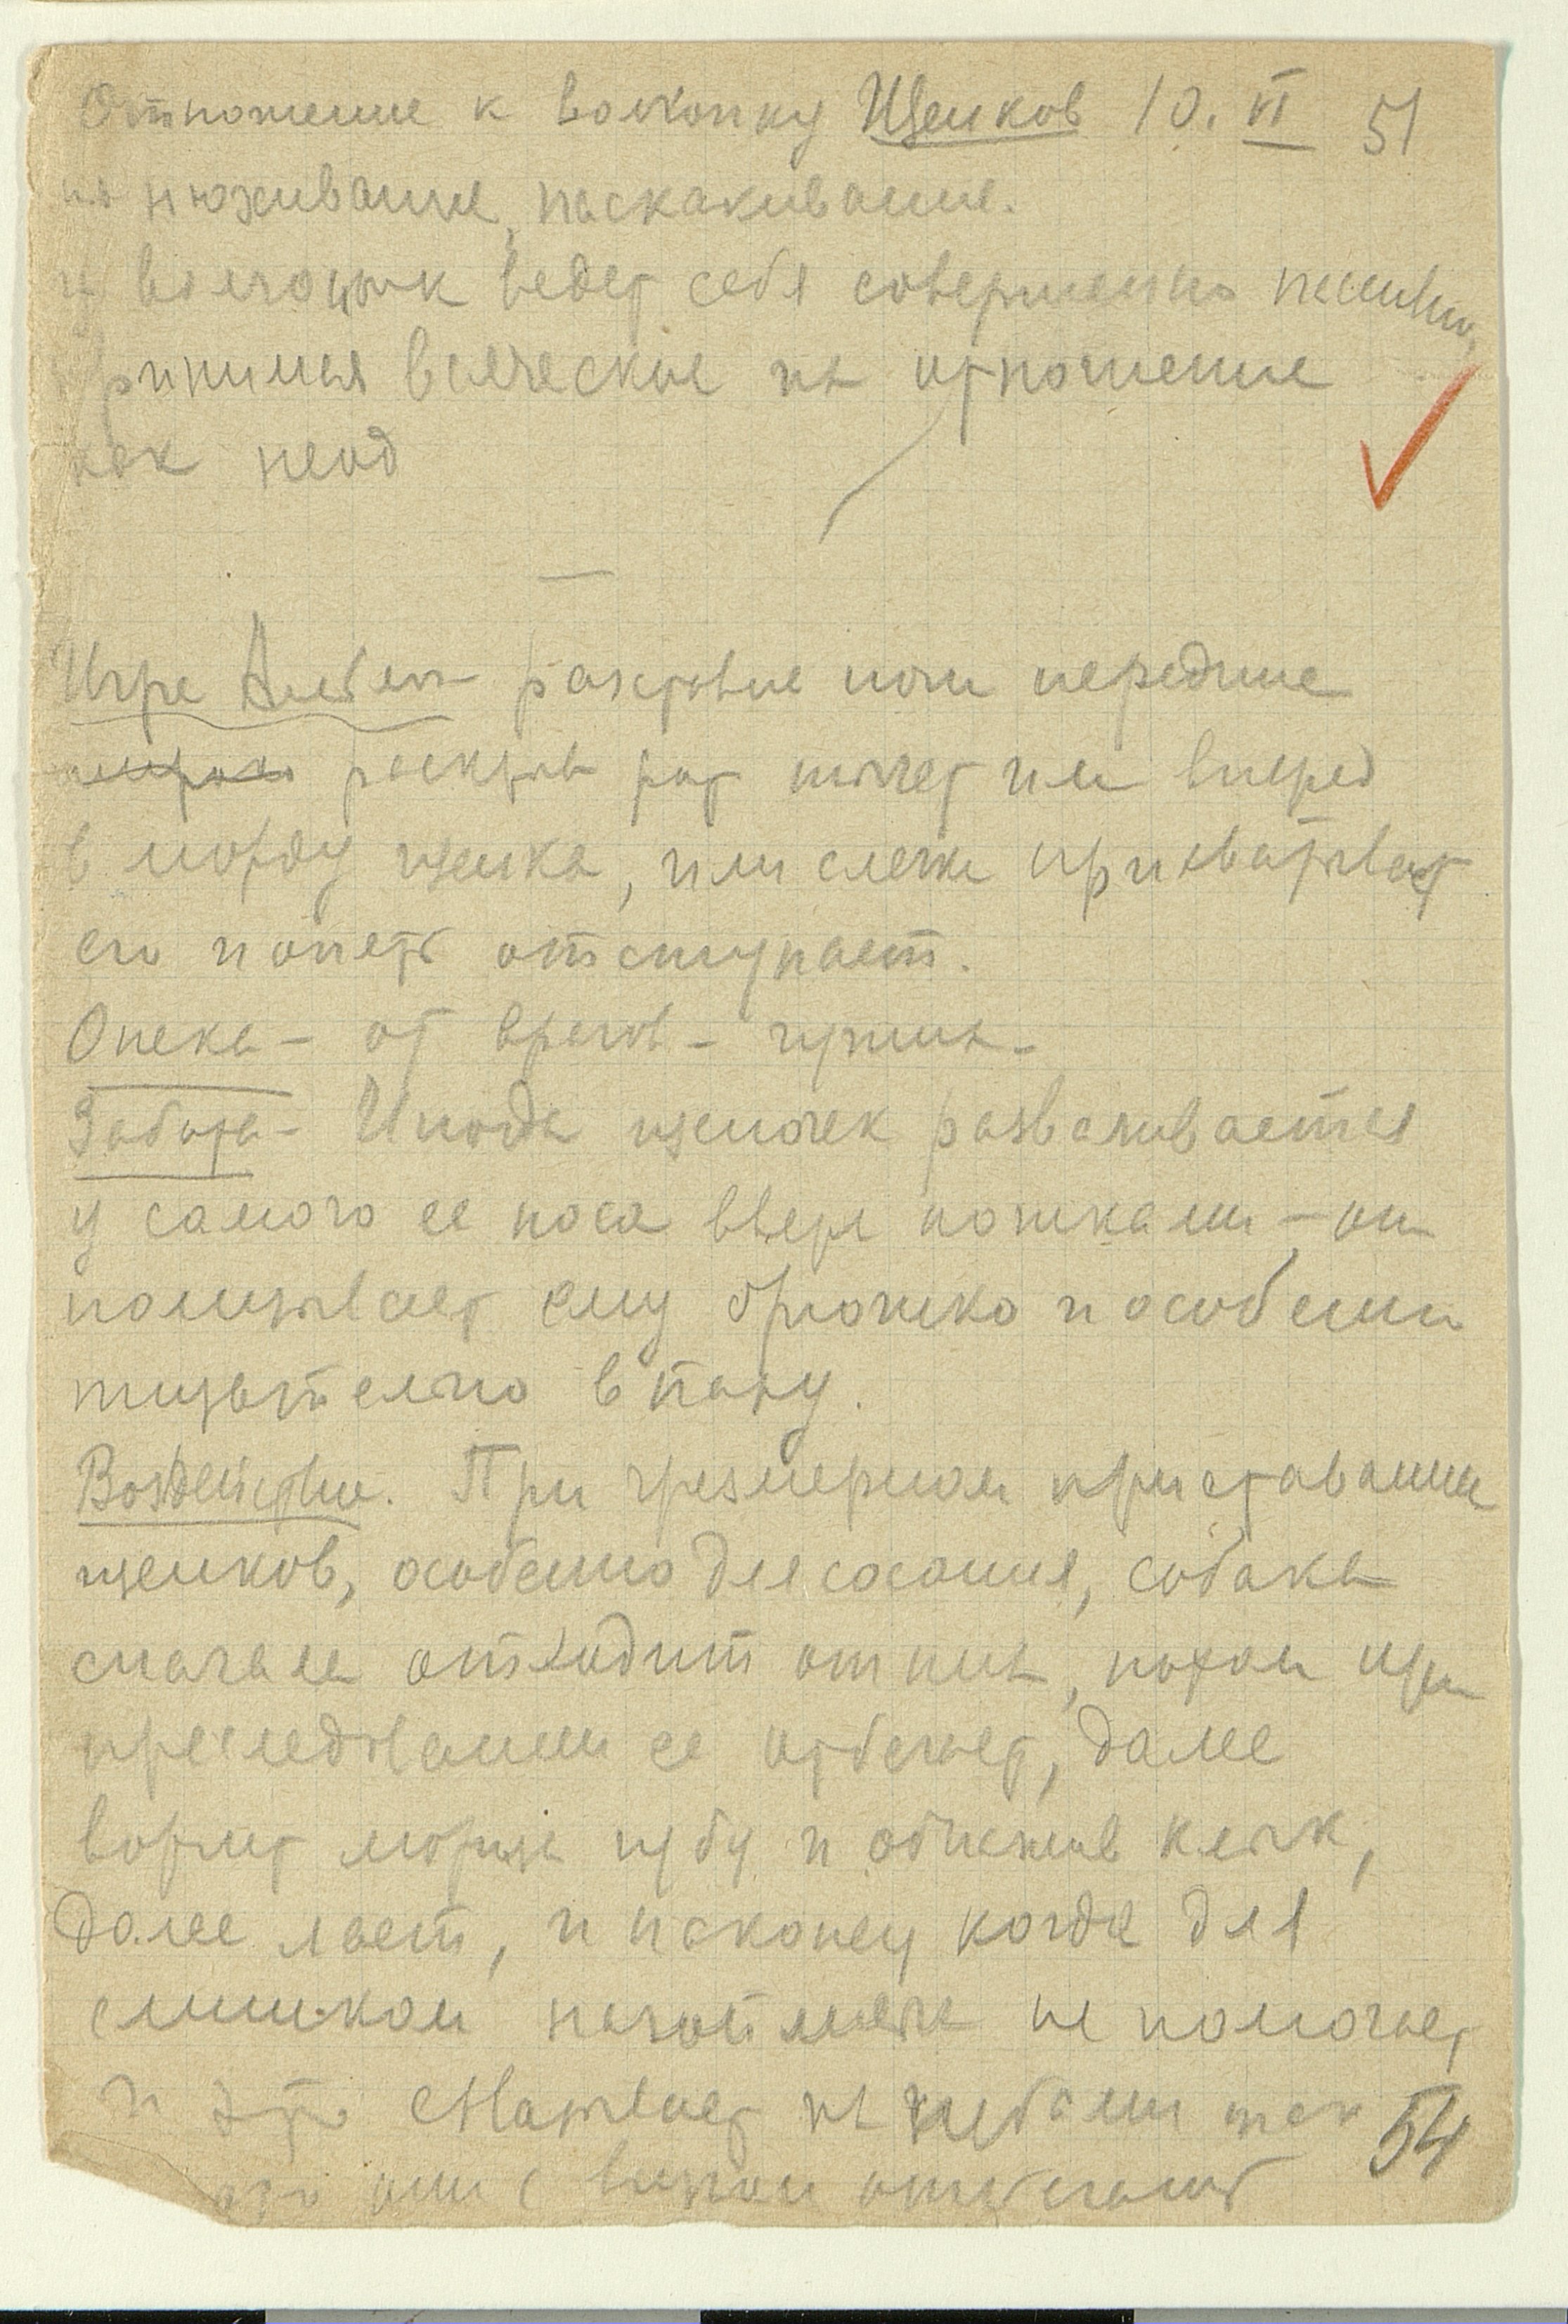 Отношение к волчонку Щенков 10. VI 51
нюживание, наскакивание.
волчонок ведет себя совершенно пассивно,
принимая всяческие их отношение
как
—
Игра расставив ноги передние
раскрыв рот тычет им вперед
в морду щенка, или слегка прихватывает
его и опять отступает.
Опека – от врагов – чужих –
Забота – Иногда щеночек разваливается
у самого ее носа вверх ножками – он
полизывает ему брюшко и особенно
тщательно в паху.
Воздействие. При чрезмерном приставании
щенков, особенно для сосания, собака
сначала отходит от них, потом при
преследовании ее отбегает, далее
ворчит морща губу и обнажив клык,
далее лает, и наконец когда для
слишком не помогает
и это схватывает их зубами так
что они с визгом отбегают
54